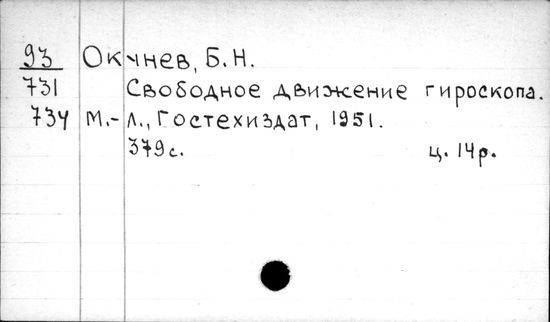 93 Окунев, Б.Н.
731 Свободное движение гироскопа.
734 М.-Л., Гостехиздат, 1951.
379с. ц. 14р.